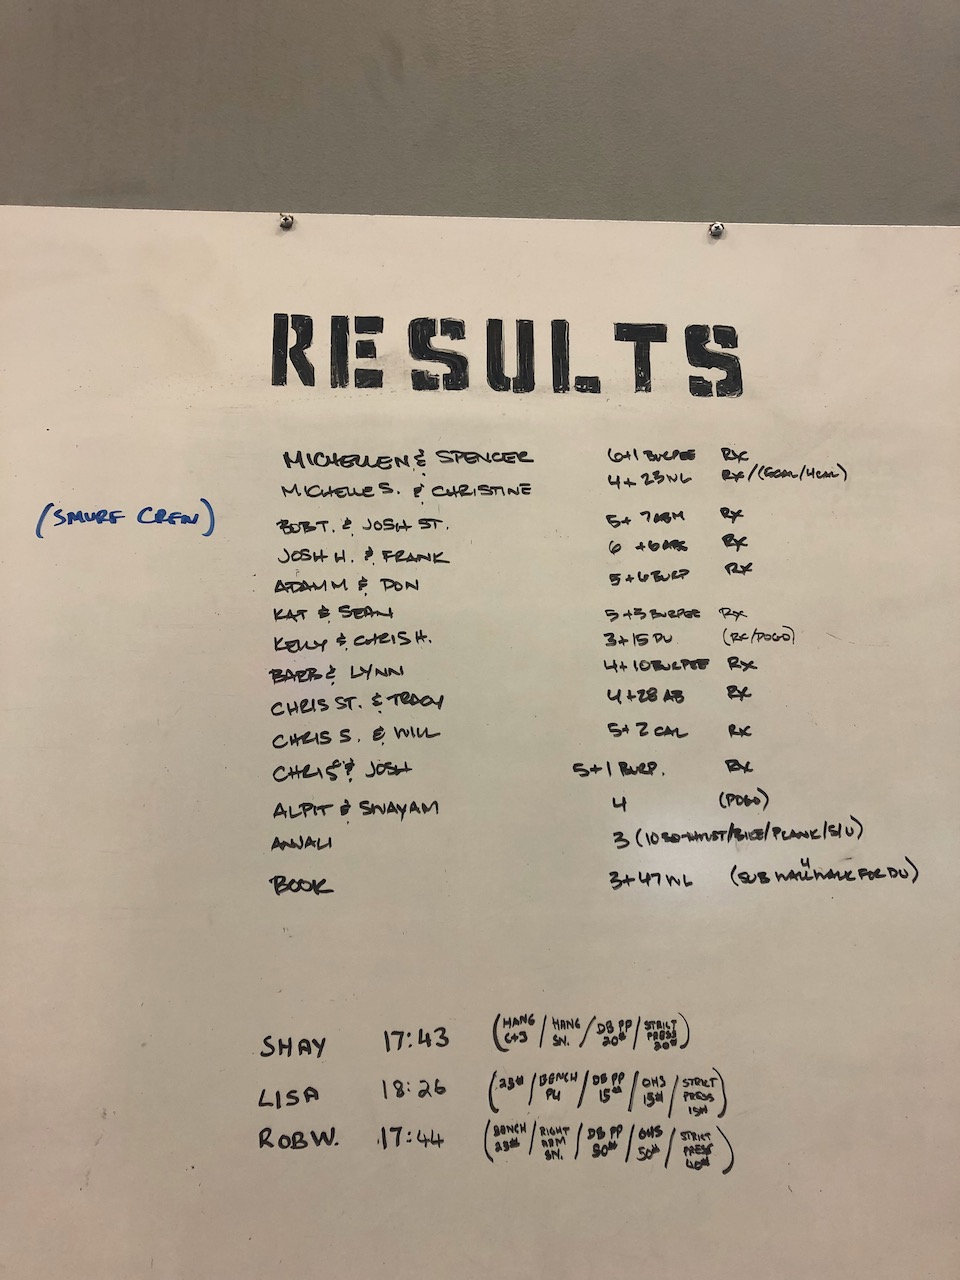 RESULTS
MICHELLE N & SPENCER 6+1 BURPEE RX
MICHELLE S. & CHRISTINE 4+23 WL RX/(5CAL/4CAL)
(SMURF CREW) BOB T. & JOSH ST. 5+ 7 ABM RX
JOSH H. & FRANK 6 +6 RX
ADAM M & DON 5+6 BURP RX
KAT & SEAN 5+5 BURPEE RX
KELLY & CHRIS H. 3+15 DU (RX/POGO)
BARB & LYNN 4+10 BURPEE RX
CHRIS ST. & TRACY 4+28 AB RX
CHRIS S. & WILL 5+2 CAL RX
CHRIS & JOSH 5+1 BURP. RX
ALPIT & SWAYAM 4 (POGO)
ANJALI 3 (10 /BIKE/PLANK/S/U)
BOOK 3+47 WL (SUB 4 WALL WALK FOR DU)
SHAY 17:43 (HANG C+J / HANG SN. / DB PP 20# / STRICT PRESS 20#)
LISA 18:26 (23# / BENCH PU / DB PP 15# / OHS 15# / STRICT PRESS 15#)
ROB W. 17:44 (BENCH 23# / RIGHT ARM SN. / DB PP 30# / OHS 50# / STRICT PRESS 40#)